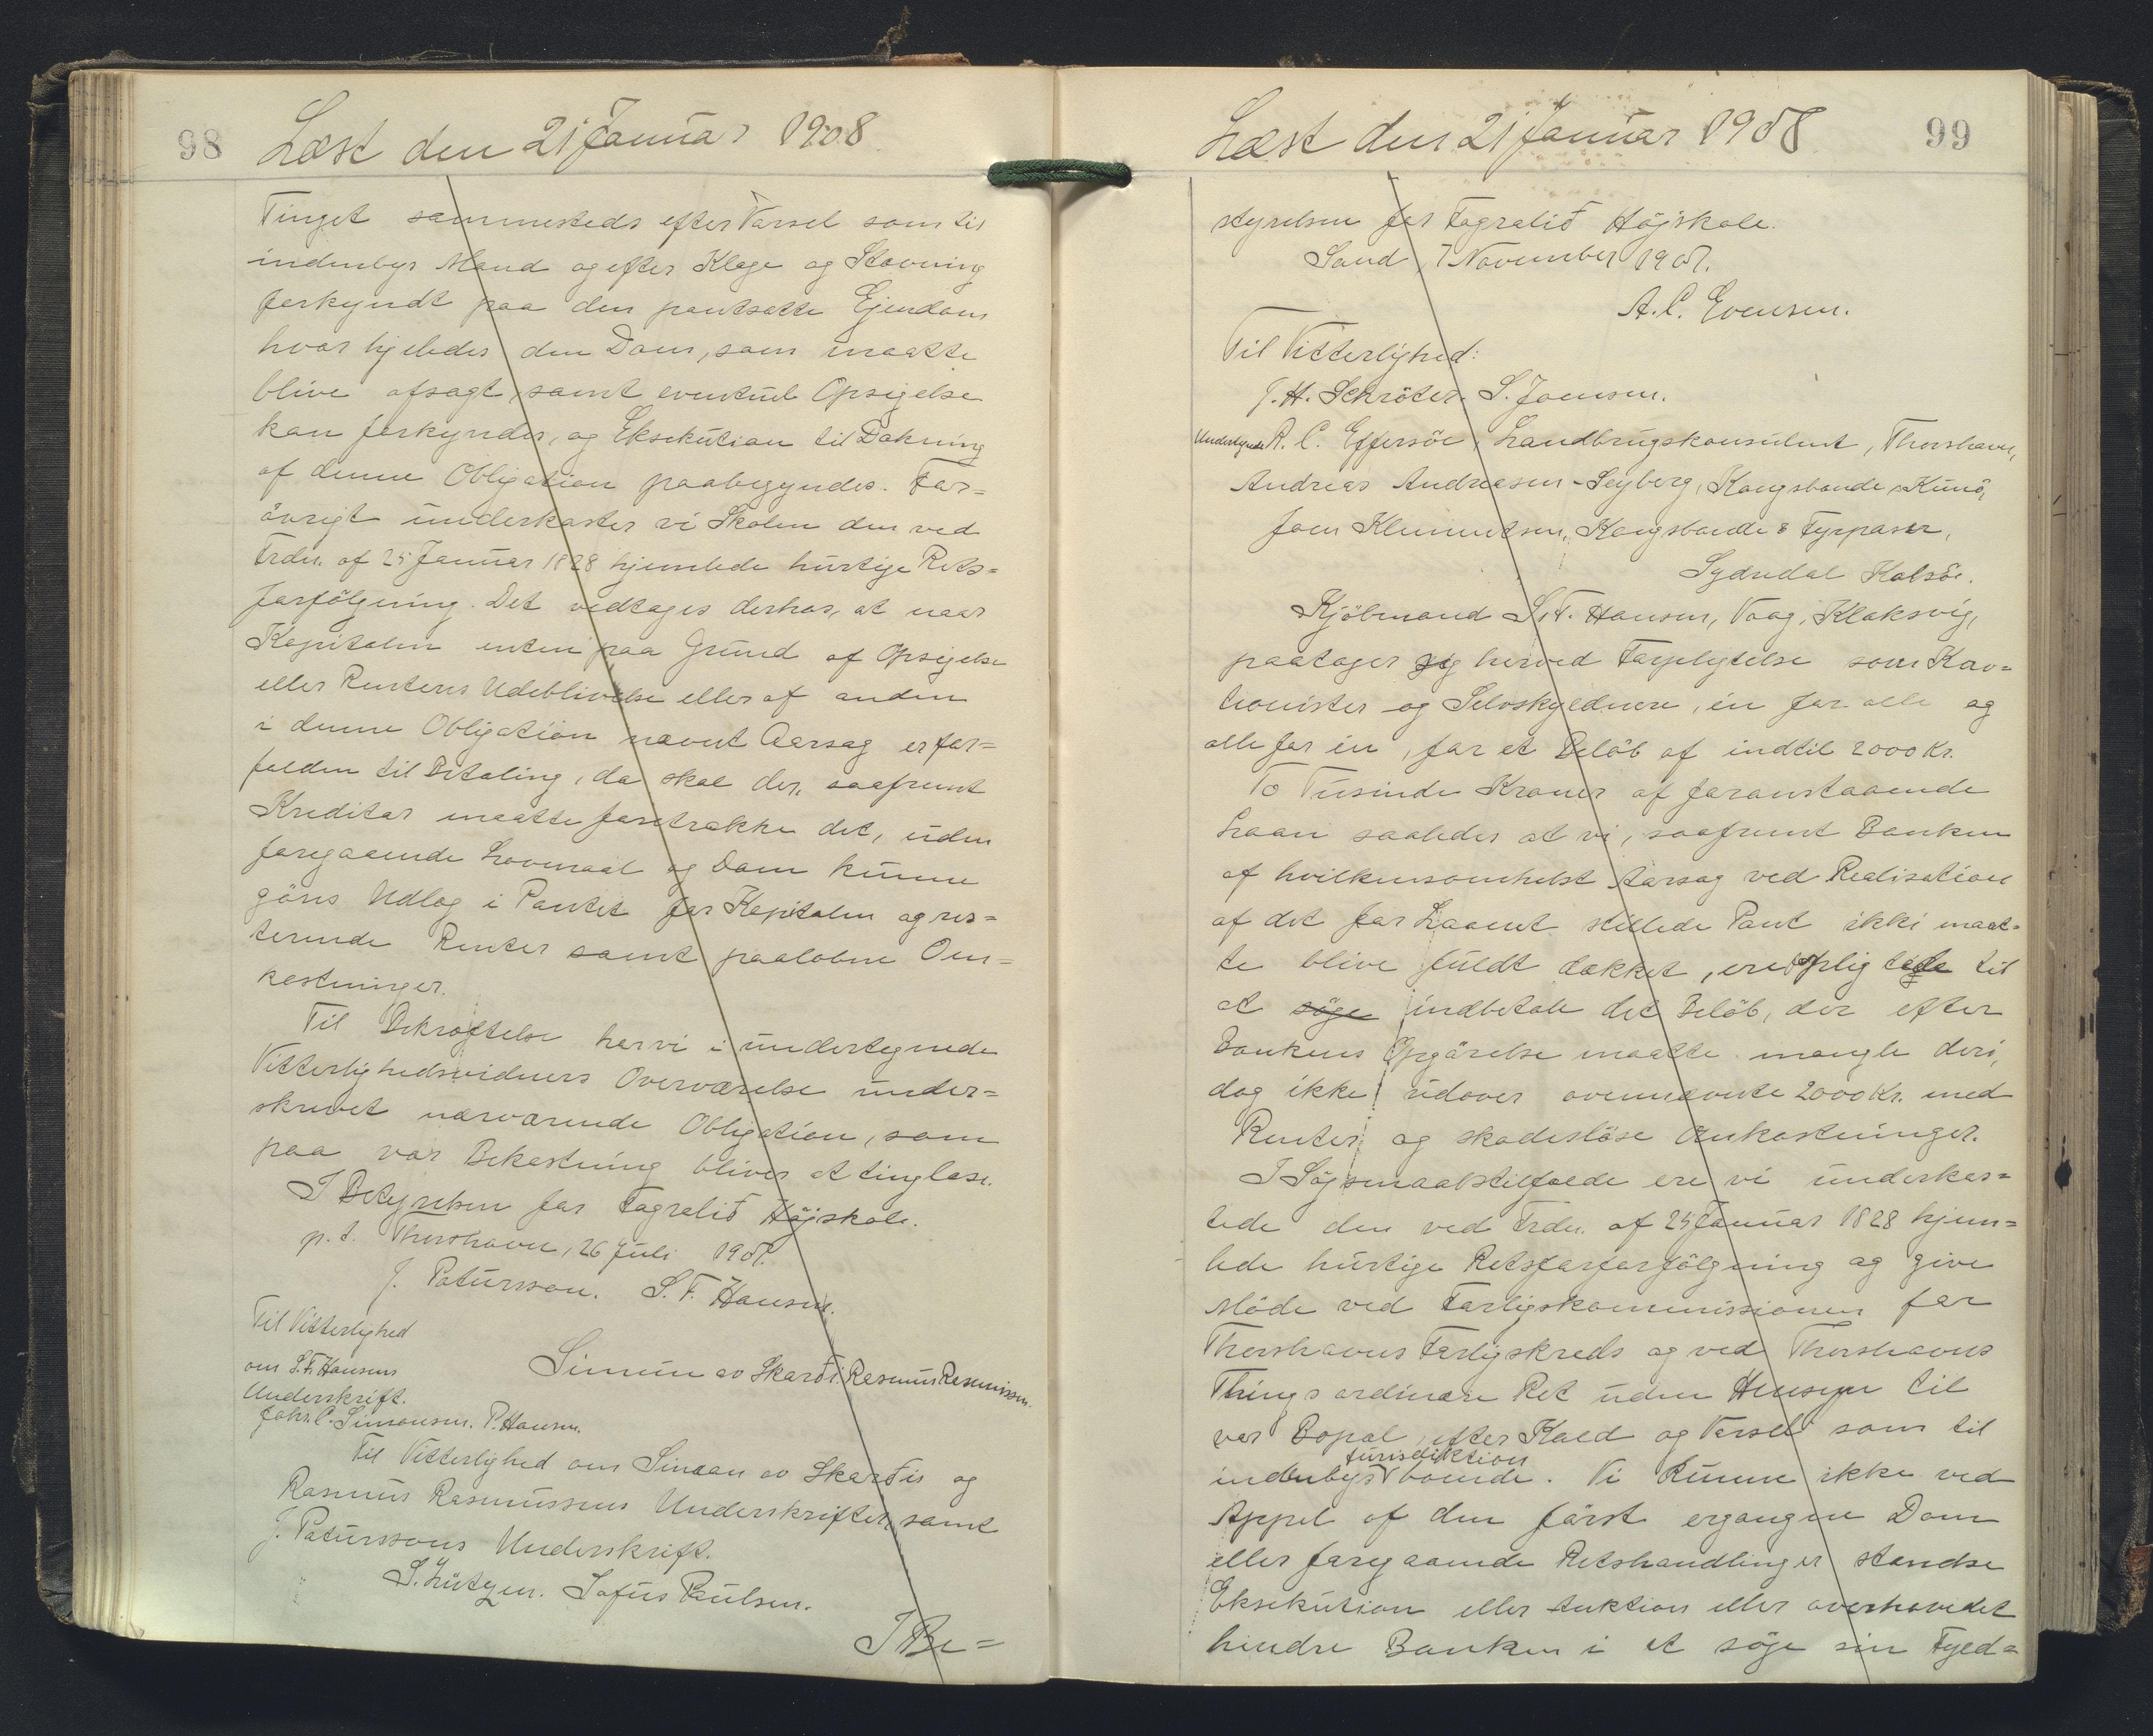 98
Læst den 21 Januar 1908
Tinget sammesteds efter Varsel som til
indenbys Mand og efter Klage og Stævning
forkyndt paa den pantsatte Ejendom
hvor ligeledes den Dom, som maatte
blive afsagt samt eventuel Opsigelse
kan forkyndes, og Eksekution til Dækning
af denne Obligation paabegyndes. For=
övrigt underkaster vi Skolen den ved
Frdn. af 25 Januar 1828 hjemlede hurtige Rets=
forfölgning. Det vedtages derhos, at naar
Kapitalen enten paa Grund af Opsigelse
eller Rentens Udeblivelse eller af anden
i denne Obligation nævnt Aarsag er for=
falden til Betaling, da skal der, saafremt
Kreditor maatte foretrække det, uden
foregaaende Lovmaal og Dom kunne
göres Udlæg i Pantet for Kapitalen og res=
terende Renter samt paaløbne Om=
kostninger.
Til Bekræftelse har vi i undertegnede
Vitterlighedsvidners Overværelse under=
skrevet nærværende Obligation, som
paa vor Bekostning bliver at tinglæse.
I Bestyrelsen for Fagralið Højskole.
p. t. Thorshavn, 26 Juli 1907.
J. Patursson. S. F. Hansen.
Til Vitterlighed
om S. F. Hansens
Underskrift.
Simun av Skarði. Rasmus Rasmussen.
Johs. C. Simonsen. P. Hansen.
Til Vitterlighed om Simun av Skarðis og
Rasmus Rasmussens Underskrifter, samt
J. Paturssons Underskrift.
S. Lützen. Sofus Poulsen.
I Be=
99
Læst den 21 Januar 1908
styrelsen for Fagralið Höjskole.
Sand, 7 November 1907.
A. C. Evensen.
Til Vitterlighed:
J. H. Schröter. S. Joensen.
Undertegnede R. C. Effersöe, Landbrugskonsulent, Thorshavn,
Andreas Andreasen-Seyberg, Kongsbonde, Kunö,
Joen Klementsen, Kongsbonde & Fyrpasser,
Sydredal Kalsöe.
Kjöbmand S. F. Hansen, Vaag, Klaksvig,
paatager sig herved Forpligtelse som Kav=
tionister og Selvskyldnere, en for alle og
alle for en, for et Belöb af indtil 2000 Kr.
To Tusinde Kroner af foranstaaende
Laan saaledes at vi, saafremt Banken
af hvilkensomhelst Aarsag ved Realisation
af det for Laanet stillede Pant ikke maat=
te blive fuldt dækket, ere pligtige til
at söge indbetale det Belöb, der efter
Bankens Opgörelse maatte mangle deri,
dog ikke udover ovennævnte 2000 Kr. med
Renter og skadeslöse Omkostninger.
I Sögsmaalstilfælde ere vi underkas=
tede den ved Frdn. af 25 Januar 1828 hjem=
lede hurtige Retsforforfölgning og give
Möde ved Forligskommissionen for
Thorshavns Forligskreds og ved Thorshavns
Things ordinære Ret uden Hensyn til
vor Bopæl, efter Kald og Varsel som til
Jurisdiktion
indenbys boende. Vi kunne ikke ved
Appel af den först ergangne Dom
eller foregaaende Retshandlinger standse
Eksekution eller Auktion eller overhovedet
hindre Banken i at söge sin Fyld=